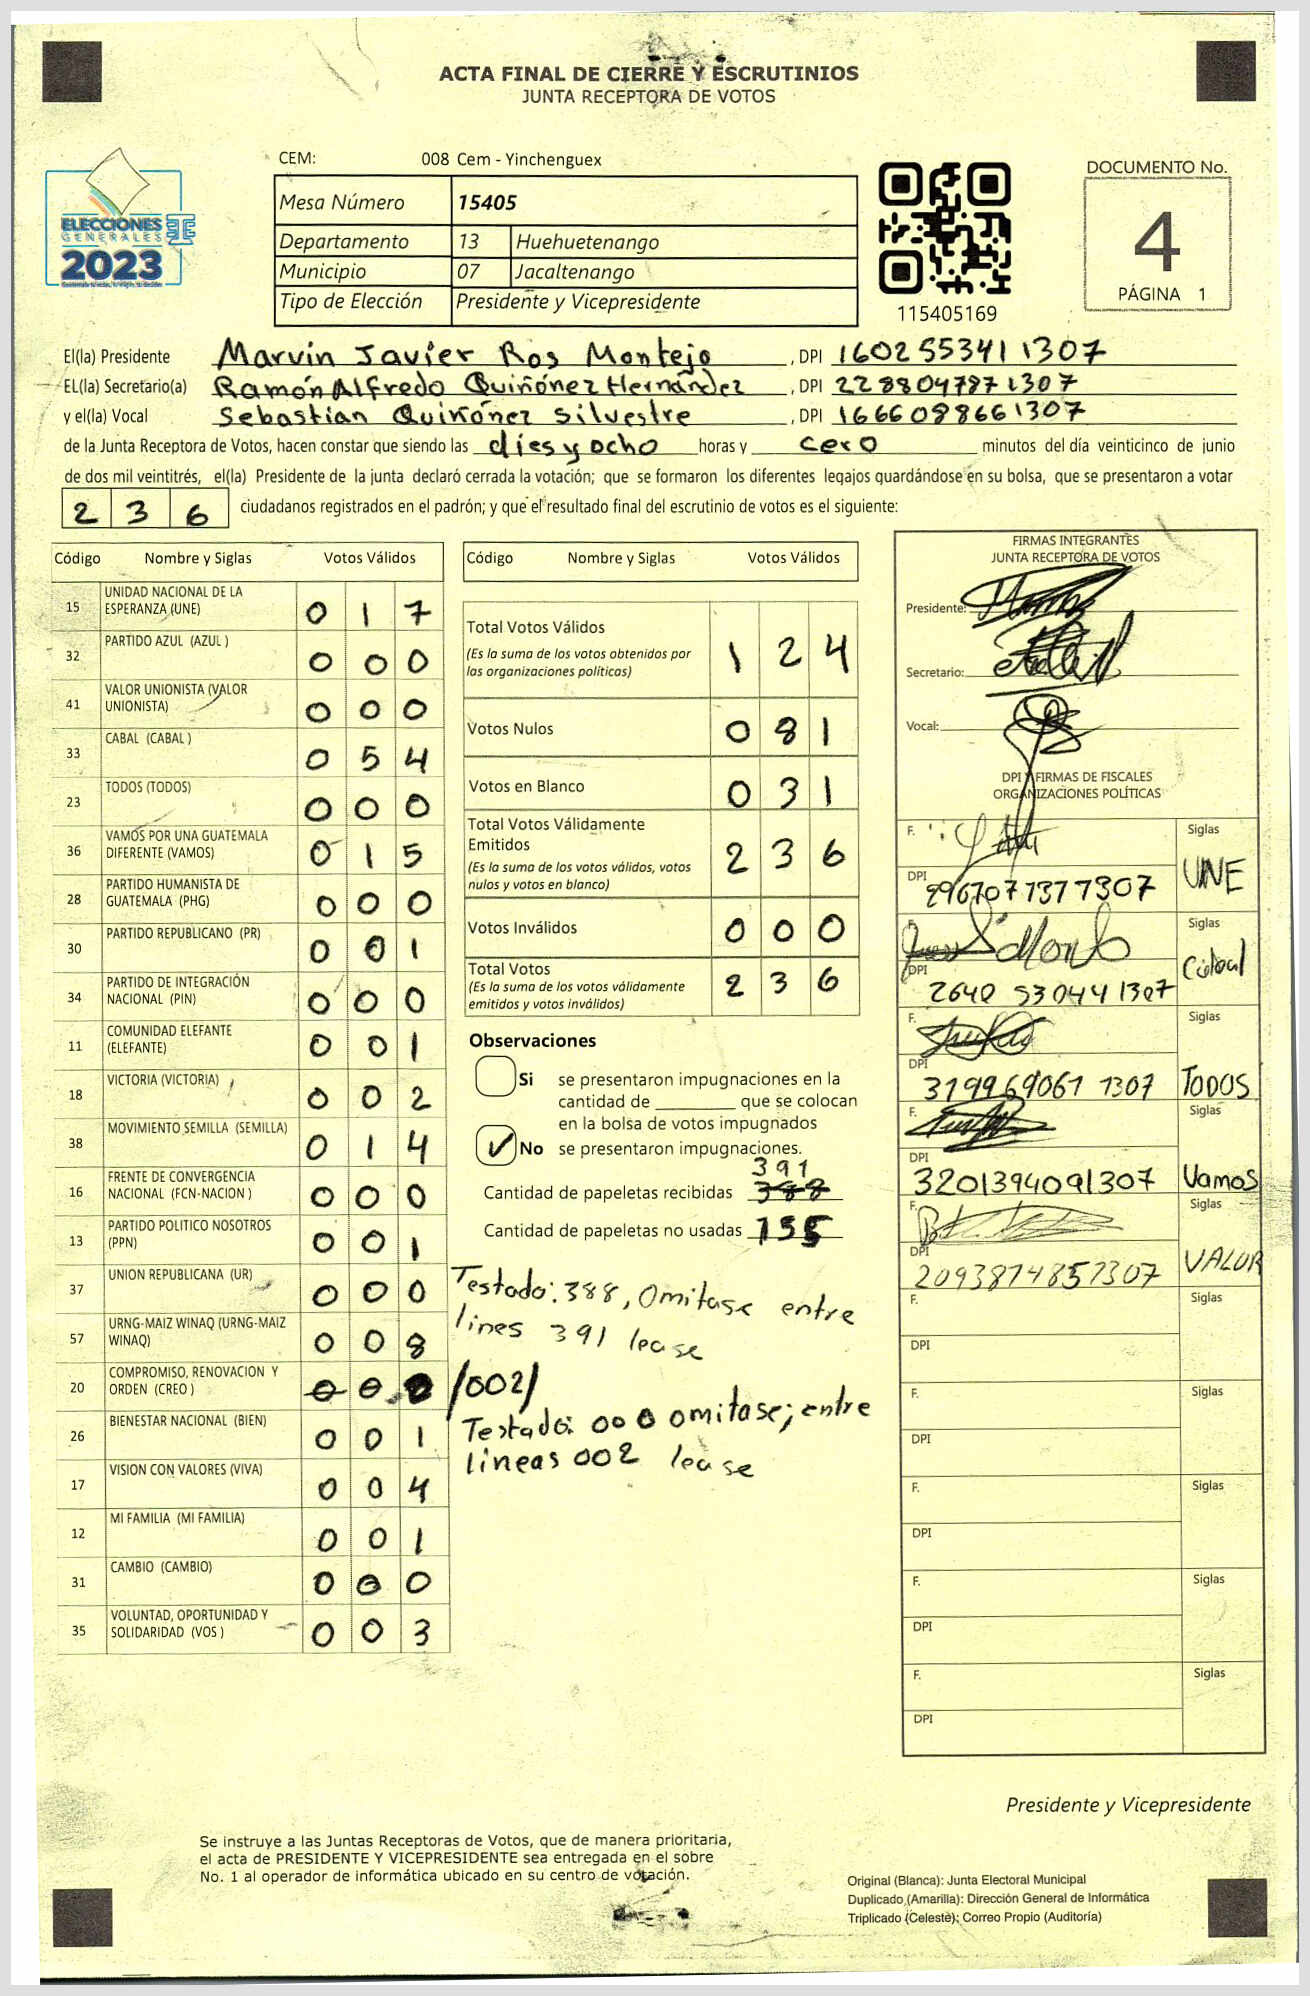 ACTA FINAL DE CIERRE Y ESCRUTINIOS
JUNTA RECEPTORA DE VOTOS
CEM: 008 Cem - Yinchenguex
Mesa Número 15405
Departamento 13 Huehuetenango
Municipio 07 Jacaltenango
Tipo de Elección Presidente y Vicepresidente
ELECCIONES
GENERALES
2023
115405169
DOCUMENTO No.
4
PÁGINA 1
El(la) Presidente Marvin Javier Ros Montejo, DPI 1602553411307
EL(la) Secretario(a) Ramón Alfredo Quiñónez Hernández, DPI 2288047871307
y el(la) Vocal Sebastian Quiñónez Silvestre, DPI 1666088661307
de la Junta Receptora de Votos, hacen constar que siendo las dies y ocho horas y cero minutos del día veinticinco de junio
de dos mil veintitrés, el(la) Presidente de la junta declaró cerrada la votación; que se formaron los diferentes legajos guardándose en su bolsa, que se presentaron a votar
236 ciudadanos registrados en el padrón; y que el resultado final del escrutinio de votos es el siguiente:
Código Nombre y Siglas Votos Válidos
15 UNIDAD NACIONAL DE LA ESPERANZA (UNE) 017
32 PARTIDO AZUL (AZUL ) 000
41 VALOR UNIONISTA (VALOR UNIONISTA) 000
33 CABAL (CABAL ) 054
23 TODOS (TODOS) 000
36 VAMOS POR UNA GUATEMALA DIFERENTE (VAMOS) 015
28 PARTIDO HUMANISTA DE GUATEMALA (PHG) 000
30 PARTIDO REPUBLICANO (PR) 001
34 PARTIDO DE INTEGRACIÓN NACIONAL (PIN) 000
11 COMUNIDAD ELEFANTE (ELEFANTE) 001
18 VICTORIA (VICTORIA) 002
38 MOVIMIENTO SEMILLA (SEMILLA) 014
16 FRENTE DE CONVERGENCIA NACIONAL (FCN-NACION ) 000
13 PARTIDO POLITICO NOSOTROS (PPN) 001
37 UNION REPUBLICANA (UR) 000
57 URNG-MAIZ WINAQ (URNG-MAIZ WINAQ) 008
20 COMPROMISO, RENOVACION Y ORDEN (CREO ) 000 /002/
26 BIENESTAR NACIONAL (BIEN) 001
17 VISION CON VALORES (VIVA) 004
12 MI FAMILIA (MI FAMILIA) 001
31 CAMBIO (CAMBIO) 000
35 VOLUNTAD, OPORTUNIDAD Y SOLIDARIDAD (VOS ) 003
Código Nombre y Siglas Votos Válidos
Total Votos Válidos 124
(Es la suma de los votos obtenidos por
las organizaciones políticas)
Votos Nulos 081
Votos en Blanco 031
Total Votos Válidamente
Emitidos 236
(Es la suma de los votos válidos, votos
nulos y votos en blanco)
Votos Inválidos 000
Total Votos 236
(Es la suma de los votos válidamente
emitidos y votos inválidos)
Observaciones
Si se presentaron impugnaciones en la
cantidad de ________ que se colocan
en la bolsa de votos impugnados
✓ No se presentaron impugnaciones.
391
Cantidad de papeletas recibidas 388
Cantidad de papeletas no usadas 155
Testado: 388, Omitase entre
lines 391 lease
Testado: 000 omitase; entre
lineas 002 lease
FIRMAS INTEGRANTES
JUNTA RECEPTORA DE VOTOS
Presidente:
Secretario:
Vocal:
DPI Y FIRMAS DE FISCALES
ORGANIZACIONES POLÍTICAS
F. Siglas
DPI 2967071377307 UNE
F. Siglas
DPI 2640 53044 1307 Cabal
F. Siglas
DPI 319969061 1307 TODOS
F. Siglas
DPI 3201394091307 Vamos
F. Siglas
DPI 2093874857307 VALOR
F. Siglas
DPI
F. Siglas
DPI
F. Siglas
DPI
F. Siglas
DPI
F. Siglas
DPI
Presidente y Vicepresidente
Se instruye a las Juntas Receptoras de Votos, que de manera prioritaria,
el acta de PRESIDENTE Y VICEPRESIDENTE sea entregada en el sobre
No. 1 al operador de informática ubicado en su centro de votación.
Original (Blanca): Junta Electoral Municipal
Duplicado (Amarilla): Dirección General de Informática
Triplicado (Celeste): Correo Propio (Auditoría)